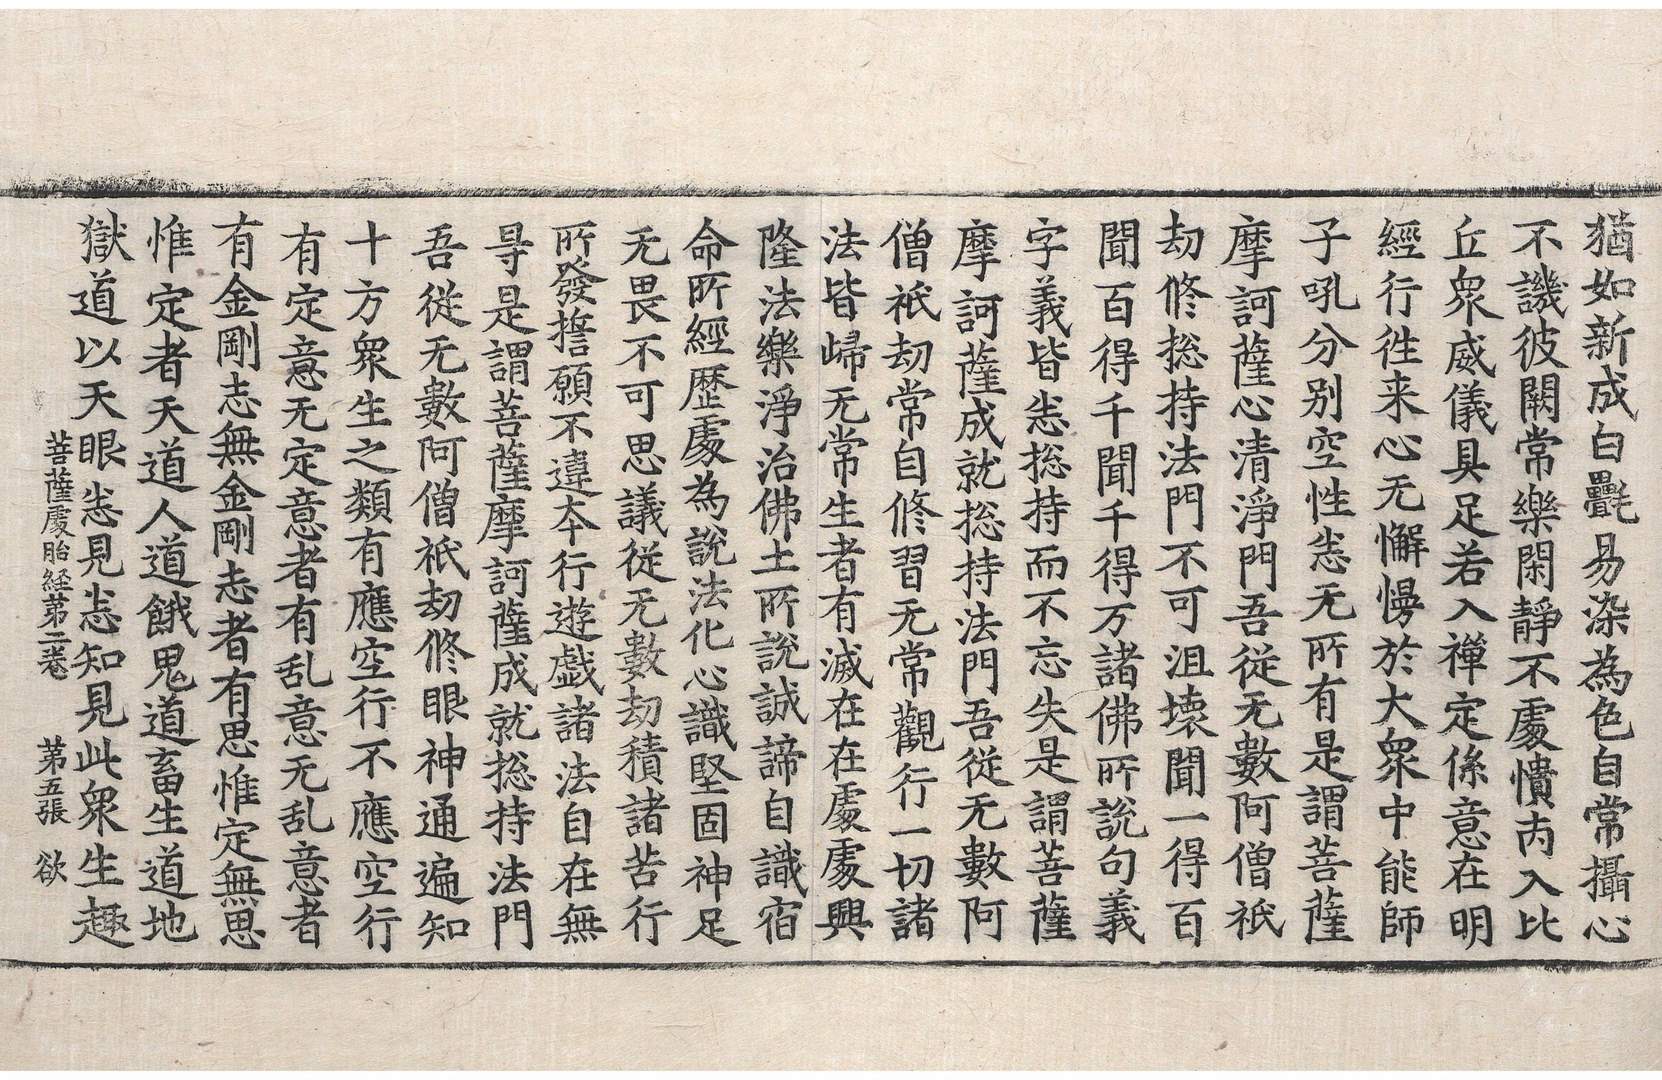 猶如新成白㲲易染為色自常攝心
不譏彼闕常樂閑靜不處憒丙入比
丘衆威儀具足若入禪定係意在明
經行徃来心无懈慢於大衆中能師
子吼分别空性悉无所有是謂菩薩
摩訶薩心清淨門吾從无數阿僧祇
劫修捴持法門不可沮壊聞一得百
聞百得千聞千得万諸佛所說句義
字義皆悉捴持而不忘失是謂菩薩
摩訶薩成就捴持法門吾從无數阿
僧祇劫常自修習无常觀行一切諸
法皆歸无常生者有滅在在處處興
隆法樂淨治佛土所說誠諦自識宿
命所經歷處為說法化心識堅固神足
无畏不可思議從无數劫積諸苦行
所發擔願不違夲行遊戲諸法自在無
㝵是謂菩薩摩訶薩成就捴持法門
吾從无數阿僧祇劫修眼神通遍知
十方衆生之類有應空行不應空行
有定意无定意者有乱意无乱意者
有金剛志無金剛志者有思惟定無思
惟定者天道人道餓鬼道畜生道地
獄道以天眼悉見悉知見此衆生趣
菩薩處胎経第二卷 第五張 欲